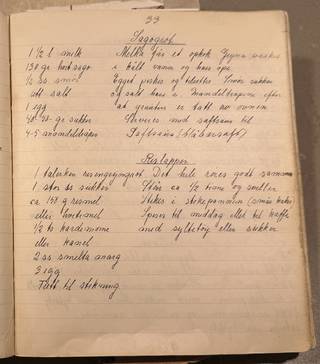 33
Sagogrøt
1 1/2 l melk Melka får et opkok. Grynа vaskes
130 gr hvit sago i kaldt vann og has opi
1/2 ss smør Egget piskes og tilsettes. Smør sukker
litt salt og salt has i. Mandeldråpene efter
1 egg at grauten er tatt av ovnen
40 gr sukker Serveres med saftsaus til
4-5 mandeldråper Saftsaus (blåbærsaft)
Reslapper
1 talerken resengrynsgrøt Det hele røres godt sammen
1 stor ss sukker Står ca 1/2 time og sveller
ca 150 g resmel Stekes i stekepannen (små kaker
eller hvetemel Spises til middag eller til kaffe
1/2 ts kardemome med syltetøy eller sukker
eller kanel
2 ss smelta marg
3 egg
Fett til stekning